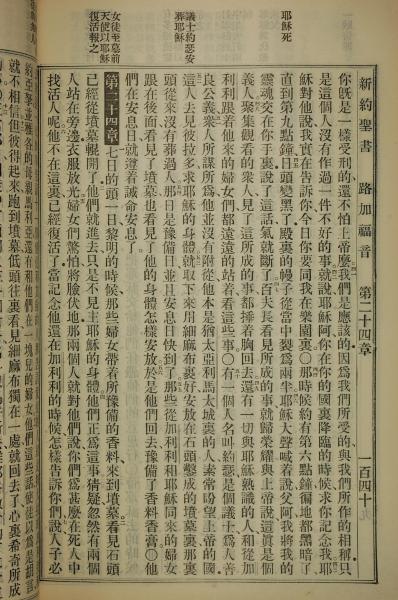 新約聖書 路加福音 第二十四章 一百四十
耶穌死
議士約瑟安
葬耶穌
女徒至墓前
天使以耶穌
復活報之
你旣是一樣受刑的還不怕上帝麽我們是應該的因爲我們所受的與我們所作的相稱只
是這個人沒有作過一件不好的事就說耶穌阿你在你的國裏降臨的時候求你記念我耶
穌對他說我實在告訴你今日你要同我在樂園裏〇那時候約有第六點鐘徧地都黑暗了
直到第九點鐘日頭變黑了殿裏的幔子從當中裂爲兩半耶穌大聲喊着說父阿我將我的
靈魂交在你手裏說了這話氣就斷了百夫長看見所成的事就歸榮耀與上帝說這眞是個
義人聚集觀看的衆人見了這所成的事都捶着胸回去還有一切與耶穌熟識的人和從加
利利跟着他來的婦女們都遠遠的站着看這些事〇有一個人名叫約瑟是個議士爲人善
良公義衆人所謀所爲他並沒有附從他本是猶太亞利馬太城裏的人素常盼望上帝的國
這人去見彼拉多求耶穌的身體就取下來用細麻布裹好安放在石頭鑿成的墳墓裏那裏
頭從來沒有葬過人那日是豫備日並且安息日快到了那些從加利利和耶穌同來的婦女
跟在後面看見了墳墓也看見了他的身體怎樣安放於是他們回去豫備了香料香膏〇他
們在安息日就遵着誡命安息了
第二十四章 七日的頭一日黎明的時候那些婦女帶着所豫備的香料來到墳墓看見石頭
已經從墳墓輥開了他們就進去只是不見主耶穌的身體他們正爲這事猜疑忽然有兩個
人站在旁邊衣服放光婦女們驚怕將臉伏地那兩個人就對他們說你們爲甚麽在死人中
找活人呢他不在這裏已經復活了當記念他還在加利利的時候怎樣告訴你們說人子必
就不相信但彼得起來跑到墳墓低頭往裏看見細麻布獨在一處就回去了心裏希奇所成